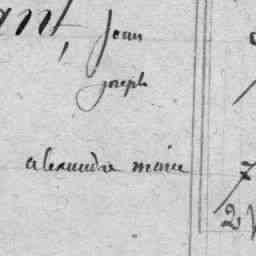 ant, Jean
joseph
alexandre marie
2